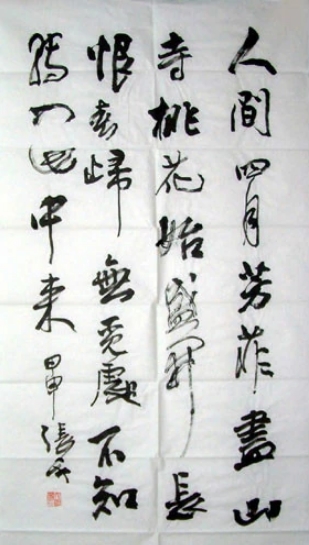 人間四月芳菲盡山
寺桃花始盛開長
恨春歸無覓處不知
轉入此中來 甲申 張